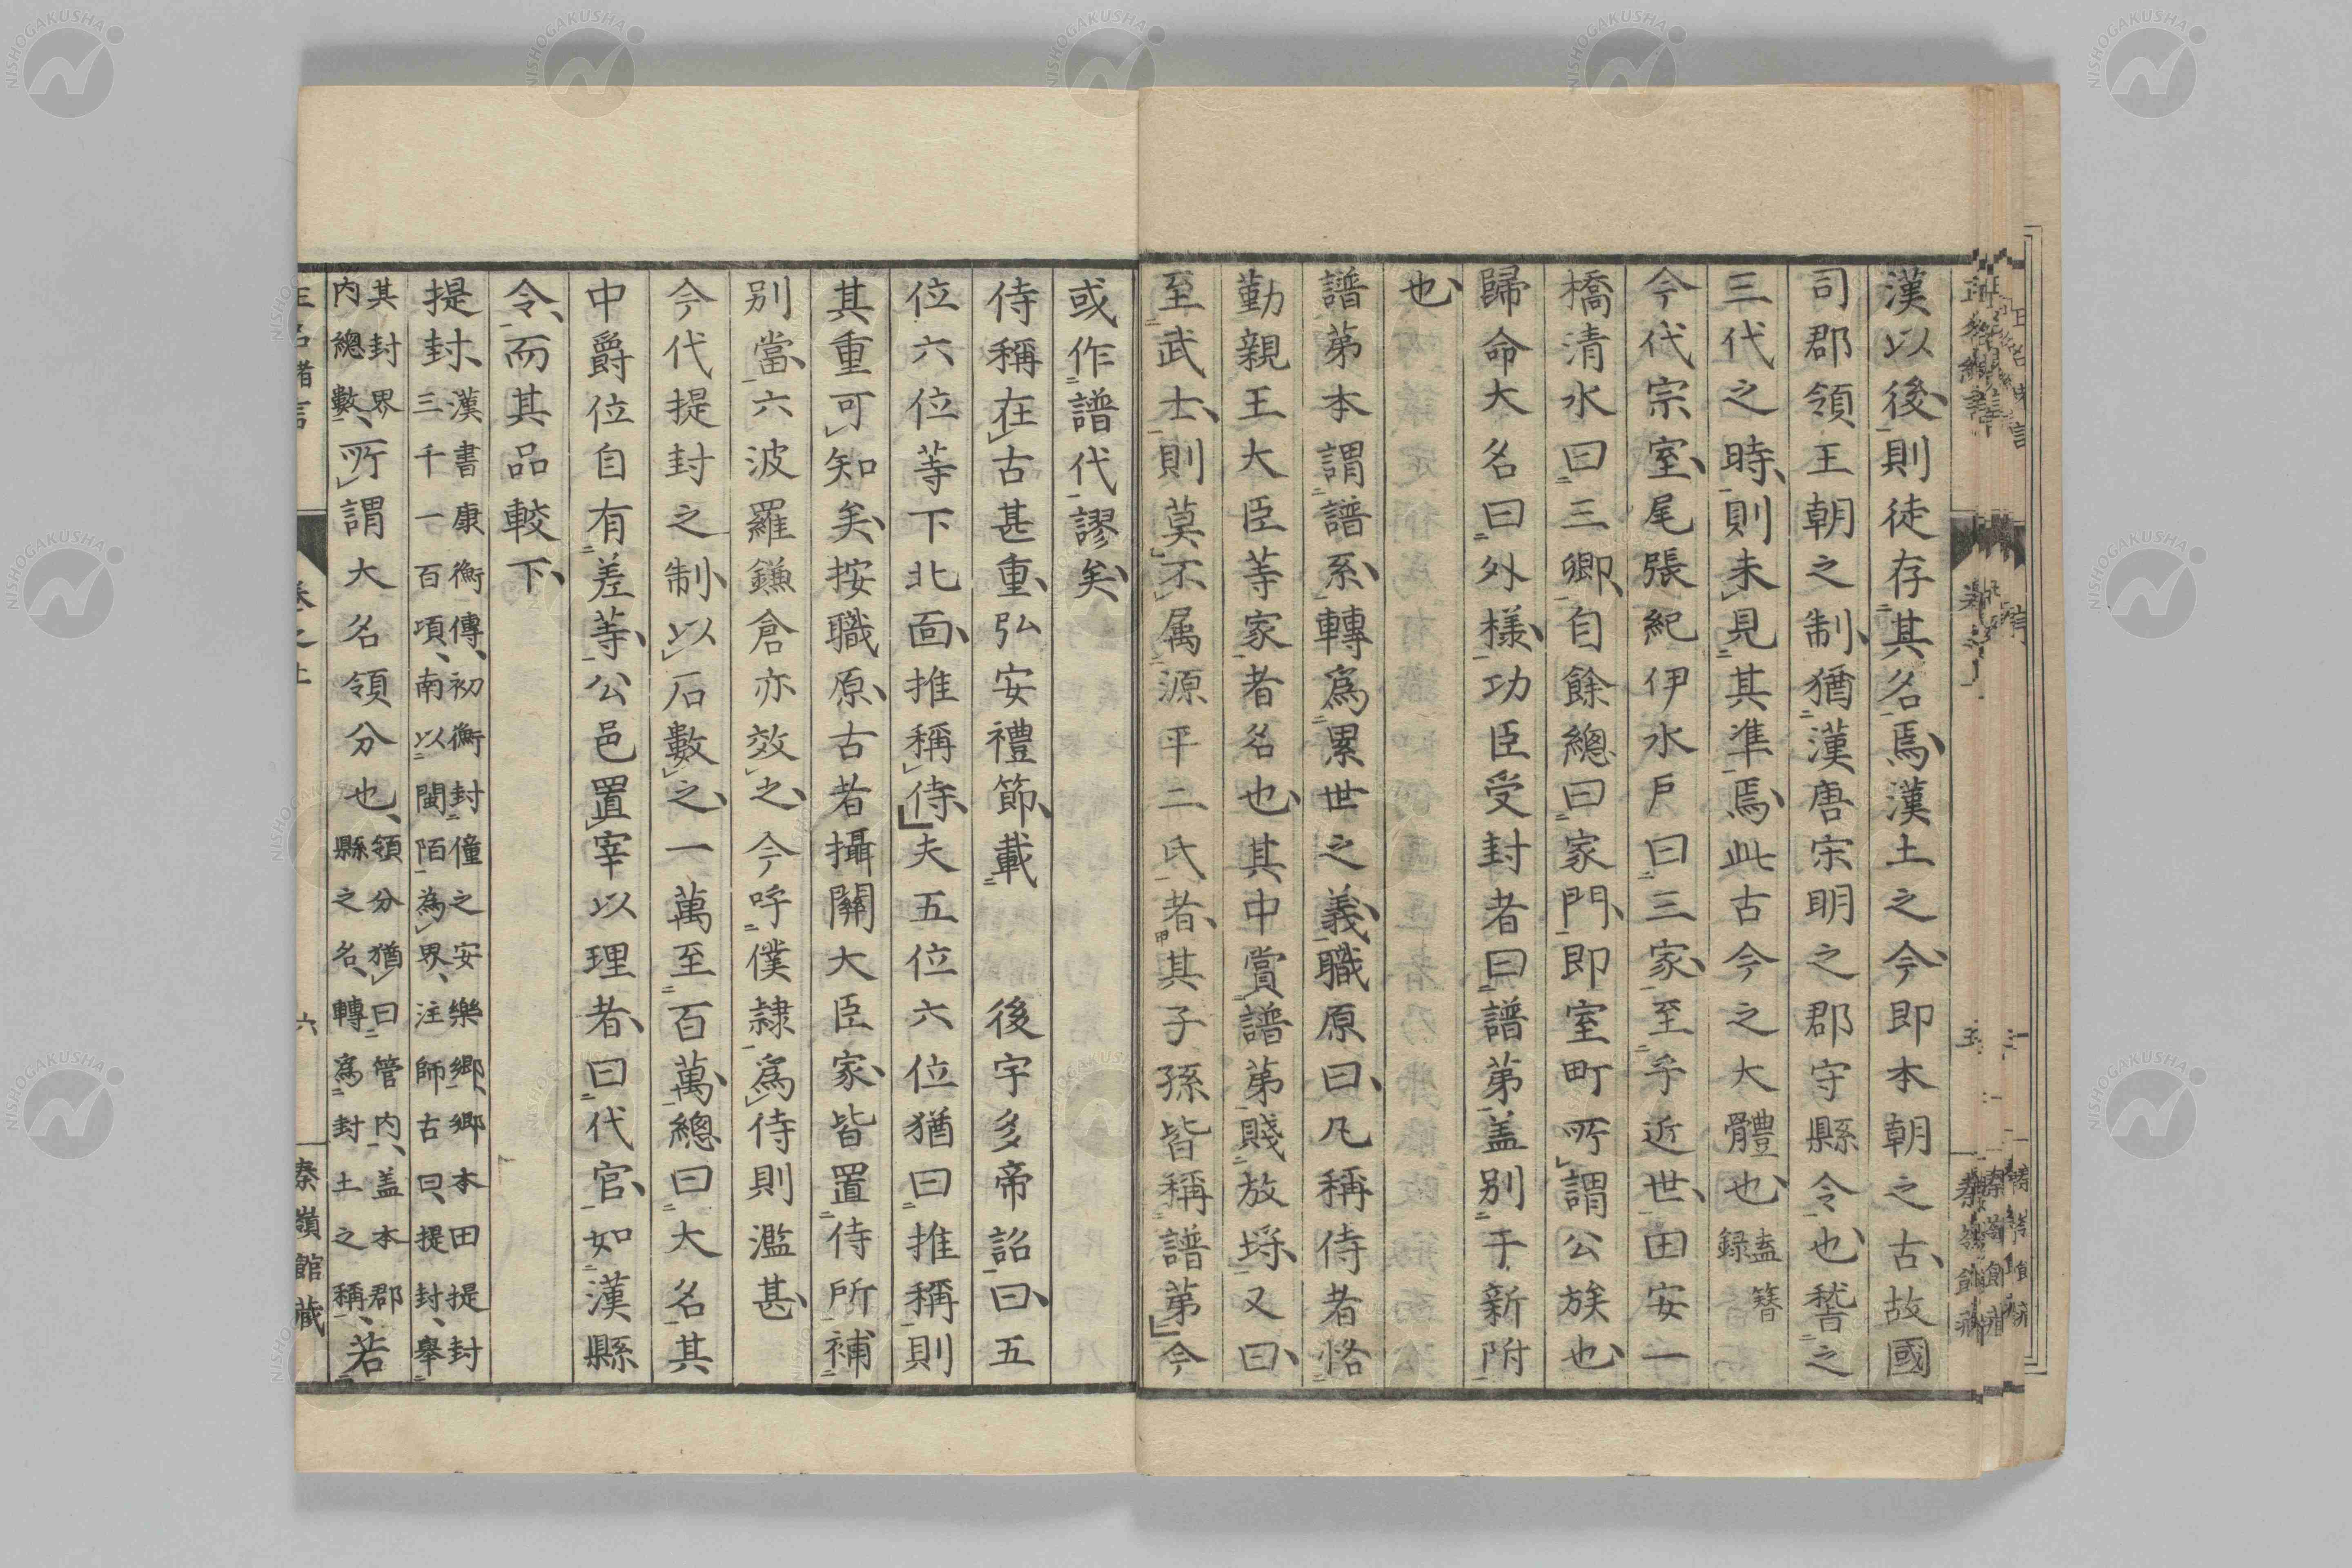 漢以後則徒存其名焉、漢土之今、即本朝之古、故國
司郡領王朝之制、猶漢唐宋明之郡守縣令也、嵇之
三代之時、則未見其準焉、此古今之大體也、盍簪録
今代宗室、尾張紀伊水戶曰三家、至乎近世、田安一
橋清水曰三卿、自餘總曰家門、即室町所謂公族也、
歸命大名曰外樣、功臣受封者曰譜第、盖別于新附
也、
譜第本謂譜系、轉爲累世之義、職原曰、凡稱侍者恪
勤親王大臣等家者名也、其中賞譜第、賤放埓、又曰、
至武士、則莫不属源平二氏者、其子孫皆稱譜第、今
或作譜代、謬矣、
侍稱在古甚重、弘安禮節、載 後宇多帝詔曰、五
位六位等下北面、推稱侍、夫五位六位猶曰推稱、則
其重可知矣、按職原、古者攝關大臣家、皆置侍所補
別當、六波羅鎌倉亦效之、今呼僕隷爲侍則濫甚、
今代提封之制、以石數之、一萬至百萬、總曰大名、其
中爵位自有差等、公邑置宰以理者、曰代官、如漢縣
令、而其品較下、
提封、漢書康衡傳、初衡封僮之安樂鄉、鄉本田提封
三千一百項、南以閩陌為界、注師古曰、提封、舉
其封界
内總數、所謂大名領分也、領分猶曰管内、盖本郡
縣之名、轉爲封土之稱、若
卷之上
六
泰嶺館藏